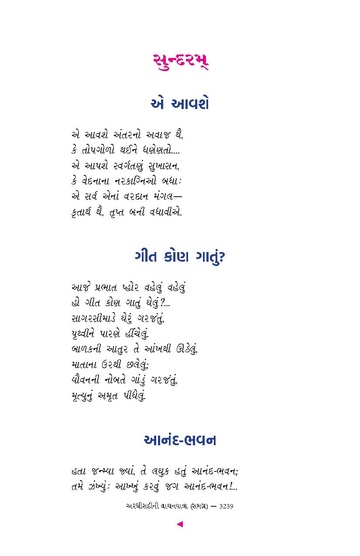 સુન્દરમ્
એ આવશે
એ આવશે અંતરનો અવાજ થૈ,
કે તોપગોળો થઈને ધણેણતો....
એ આપશે સ્વર્ગતણું સુખાસન,
કે વેદનાના નરકાગ્નિઓ બધાઃ
એ સર્વ એનાં વરદાન મંગલ—
કૃતાર્થ થૈ, તૃપ્ત બની વધાવીએ.
ગીત કોણ ગાતું?
આજે પ્રભાત પ્હોર વહેલું વહેલું
હો ગીત કોણ ગાતું ઘેલું?...
સાગરસીમાડે ઘેરું ગરજંતું,
પૃથ્વીને પારણે હીંચેલું,
બાળકની આતુર તે આંખથી ઊઠેલું,
માતાના ઉરથી છલેલું;
યૌવનની નોબતે ગાંડું ગરજંતું,
મૃત્યુનું અમૃત પીધેલું.
આનંદ-ભવન
હતા જન્મ્યા જ્યાં, તે લઘુક હતું આનંદ-ભવન;
તમે ઝંખ્યુંઃ આખ્ખું કરવું જગ આનંદ-ભવન!...
અરધીસદીની વાચનયાત્રા (સમગ્ર) — 3239